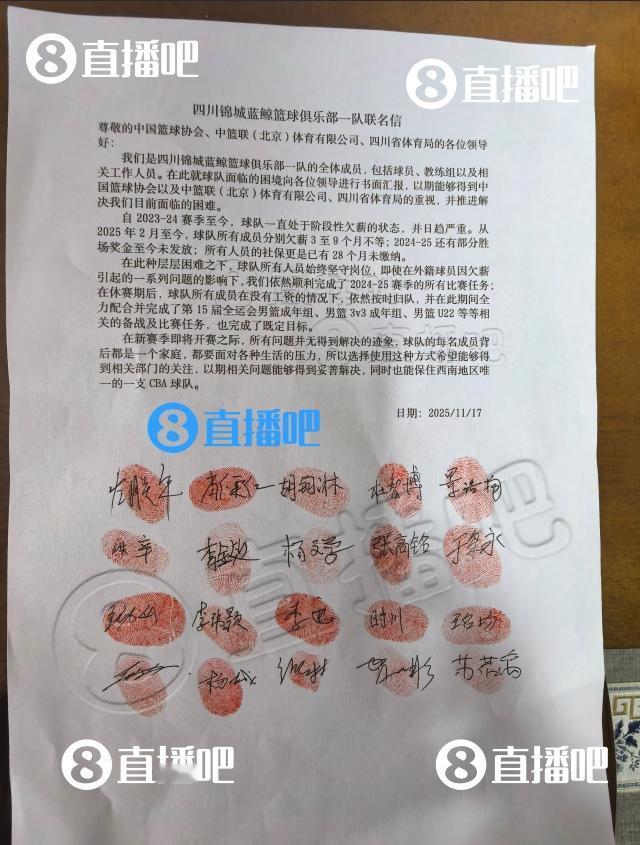 直播吧
直播吧
四川锦城蓝鲸篮球俱乐部一队联名信
尊敬的中国篮球协会、中篮联（北京）体育有限公司、四川省体育局的各位领导
好：
我们是四川锦城蓝鲸篮球俱乐部一队的全体成员，包括球员、教练组以及相
关工作人员。在此就球队面临的困境向各位领导进行书面汇报，以期能够得到中
国篮球协会以及中篮联（北京）体育有限公司、四川省体育局的重视，并推进解
决我们目前面临的困难。
自 2023-24 赛季至今，球队一直处于阶段性欠薪的状态，并日趋严重。从
2025 年 2 月至今，球队所有成员分别欠薪 3 至 9 个月不等；2024-25 还有部分胜
场奖金至今未发放；所有人员的社保更是已有 28 个月未缴纳。
在此种层层困难之下，球队所有人员始终坚守岗位，即使在外籍球员因欠薪
引起的一系列问题的影响下，我们依然顺利完成了 2024-25 赛季的所有比赛任务；
在休赛期后，球队所有成员在没有工资的情况下，依然按时归队，并在此期间全
力配合并完成了第 15 届全运会男篮成年组、男篮 3v3 成年组、男篮 U22 等等相
关的备战及比赛任务，也完成了既定目标。
在新赛季即将开赛之际，所有问题并无得到解决的迹象，球队的每名成员背
后都是一个家庭，都要面对各种生活的压力，所以选择使用这种方式希望能够得
到相关部门的关注，以期相关问题能够得到妥善解决，同时也能保住西南地区唯
一的一支 CBA 球队。
日期：2025/11/17
直播吧
杜智博 景浩翔
杨文学 张高铭 于梁永
李祎颢 李迅 时川
直播吧
直播吧
直播吧